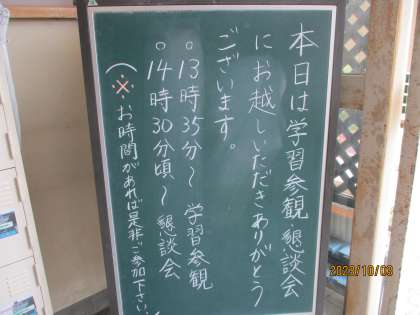 本日は学習参観・懇談会
にお越しいただきありがとう
ございます。
○13時35分〜 学習参観
○14時30分頃〜 懇談会
(※お時間があれば是非ご参加下さい。)
2023/10/03